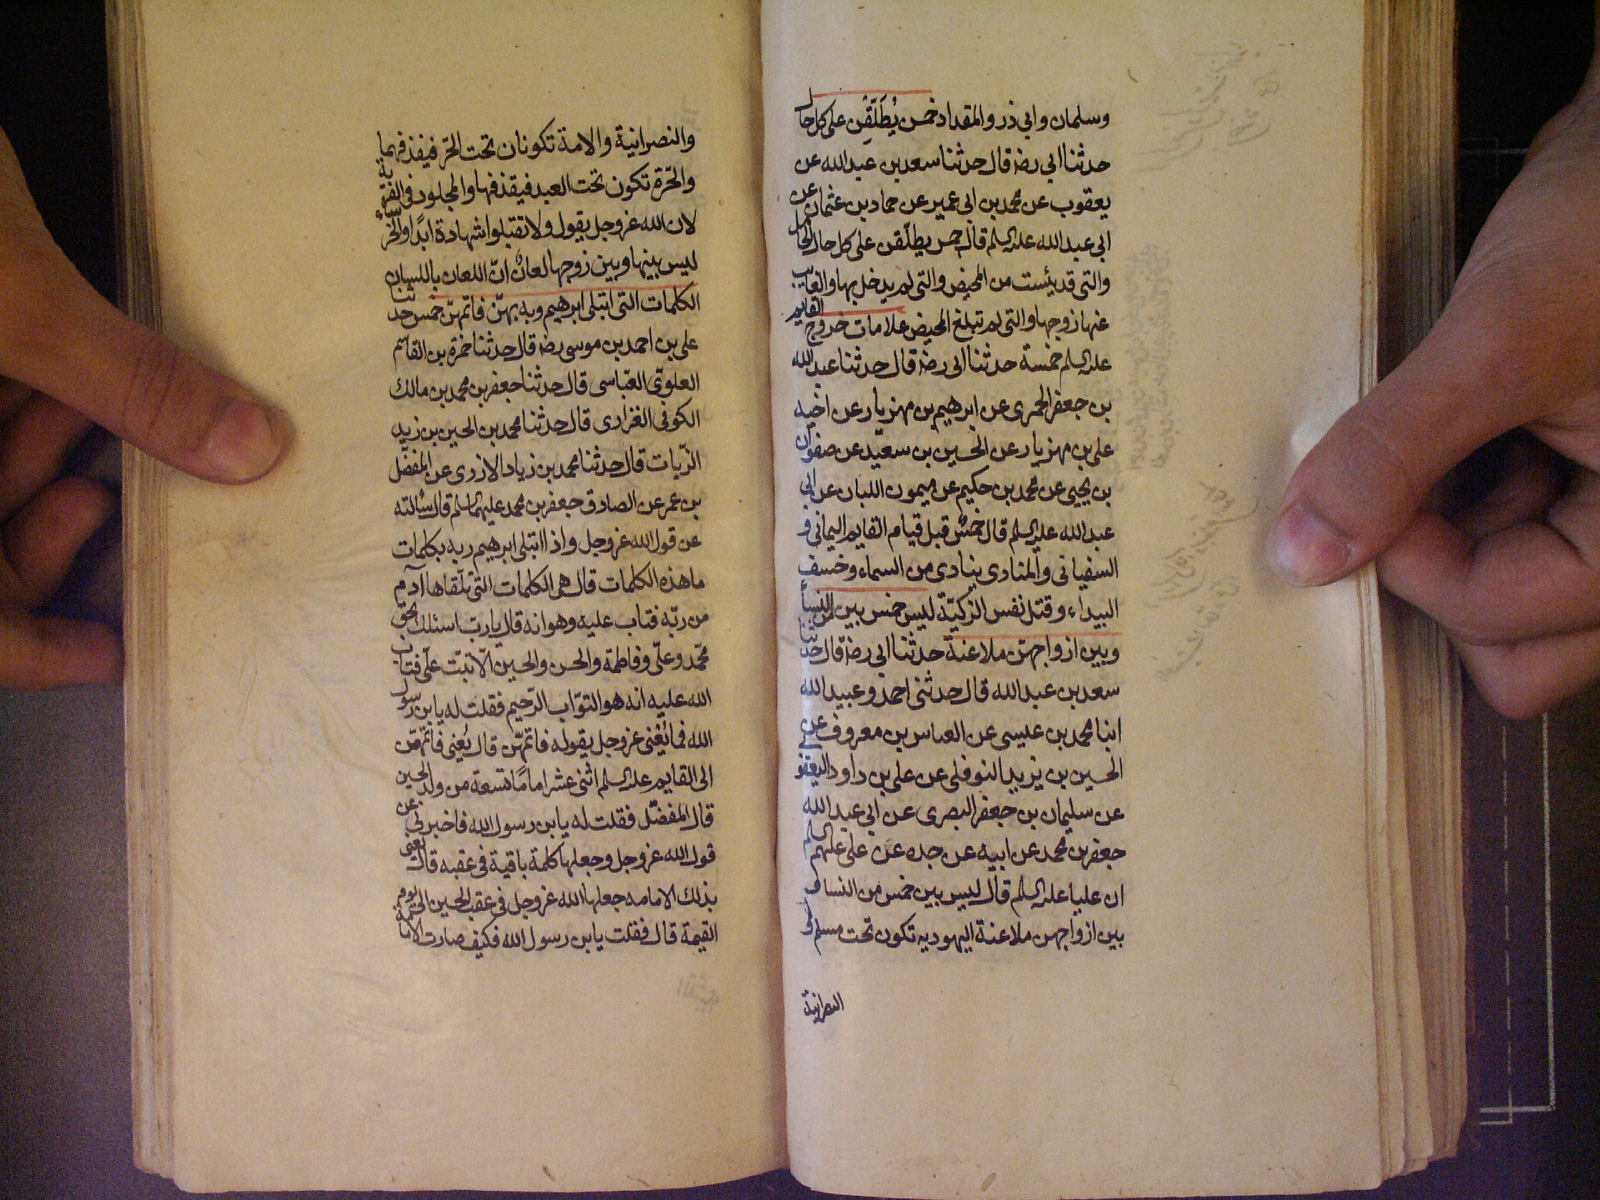 وسلمان وابي ذر والمقداد خمس يُطَلَّقْن على كل حال
حدثنا ابي رضه قال حدثنا سعد بن عبد الله عن
يعقوب عن محمد بن ابى عمير عن حماد بن عثمان عن
ابى عبد الله عليه السلم قال خمس يطلّقن على كل حال الحامل
والتى قد يئست من المحيض والتى لم يدخل بها والغايب
عنها زوجها والتى لم تبلغ المحيض علامات خروج القايم
عليه السلم خمسة حدثنا ابى رضه قال حدثنا عبد الله
بن جعفر الحميرى عن ابرهيم بن مهزيار عن اخيه
على بن مهزيار عن الحسين بن سعيد عن صفوان
بن يحيى عن محمد بن حكيم عن ميمون اللبان عن ابى
عبد الله عليه السلم قال خمس قبل قيام القايم اليمانى و
السفيانى والمنادى ينادى من السماء وخسف
البيداء وقتل نفس الزكيّة ليس خمس بين من النسأ
وبين ازواجهنّ ملاعنة حدثنا ابى رضه قال حدثنا
سعد بن عبد الله قال حدثنى احمد وعبيد الله
ابنا محمد بن عيسى عن العباس بن معروف عن على
الحسين بن يزيد النوفلى عن على بن داود اليعقو
عن سليمان بن جعفر البصرى عن ابى عبد الله
جعفر بن محمد عن ابيه عن جده عن على عليهم السلم
ان عليا عليه السلم قال ليس بين خمس من النسا و
بين ازواجهن ملاعنة اليهوديه تكون تحت مسلم و
النصرانية
والنصرانية والامة تكونان تحت الحرّ فيقذفهما
والحّرة تكون تحت العبد فيقذفها والمجلود فى الفرية
لان الله عز وجل يقول ولا تقبلوا شهادة ابدًا والخرساء
ليس بينها وبين زوجها لعان انّ اللعان باللسان
الكلمات التى ابتلى ابرهيم ربه بهنّ فاتمهنّ خمس حدثنا
على بن احمد بن موسى رضه قال حدثنا حمزة بن القاسم
العلوىّ العبّاسى قال حدثنا جعفر بن محمد بن مالك
الكوفى الفزارى قال حدثنا محمد بن الحسين بن زيد
الزّيات قال حدثنا محمد بن زياد الازدى عن المفضّل
بن عمر عن الصادق جعفر بن محمد عليهما السلم قال سألته
عن قول الله عز وجل واذا ابتلى ابرهيم ربه بكلمات
ما هذه الكلمات قال هى الكلمات التى تلقاها ادم
من ربّه فتاب عليه وهو انه قال يا ربّ اسئلك بحق
محّمد وعلّى وفاطمة والحسن والحسين الّا تبت علّى فتاب
الله عليه انه هو التوّاب الرّحيم فقلت له يا بن رسول
الله فما يُعْنى عز وجل بقوله فاتمّهنّ قال يُعنى فاتمّهنّ
الى القايم عليه السلم اثنى عشر امامًا تسعة من ولد الحسين
قال المفضّل فقلت له يا بن رسول الله فاخبرنى عن
قول الله عز وجل وجعلها كلمة باقية فى عقبه قال يعنى
بذلك الامامه جعلها الله عز وجل فى عقب الحسين الى يوم
القيمة قال فقلت يا بن رسول الله فكيف صارت الامامة